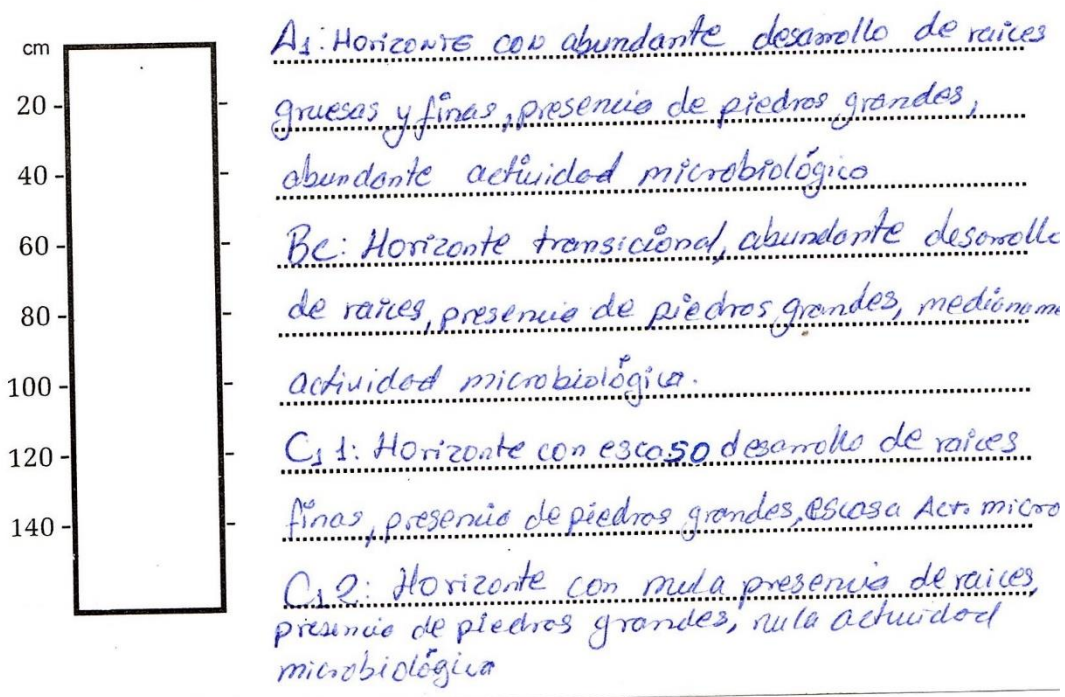 cm
20 -
40 -
60 -
80 -
100 -
120 -
140 -
A1: Horizonte con abundante desarrollo de raices
gruesas y finas, presencia de piedras grandes,
abundante actividad microbiológica
BC: Horizonte transicional, abundante desarrollo
de raices, presencia de piedras grandes, medianame
actividad microbiológica.
C1 1: Horizonte con escaso desarrollo de raices
finas, presencia de piedras grandes, escasa Act. micro
C1 2: Horizonte con nula presencia de raices,
presencia de piedras grandes, nula actividad
microbiológica